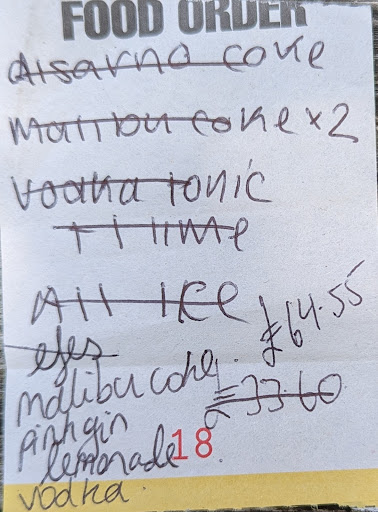 FOOD ORDER
Disarno coke
Malibu coke x2
Vodka tonic
+ 1 lime
All ICE
efes
malibu coke. £64.55
pink gin = 33.60
lemonade 18
vodka.